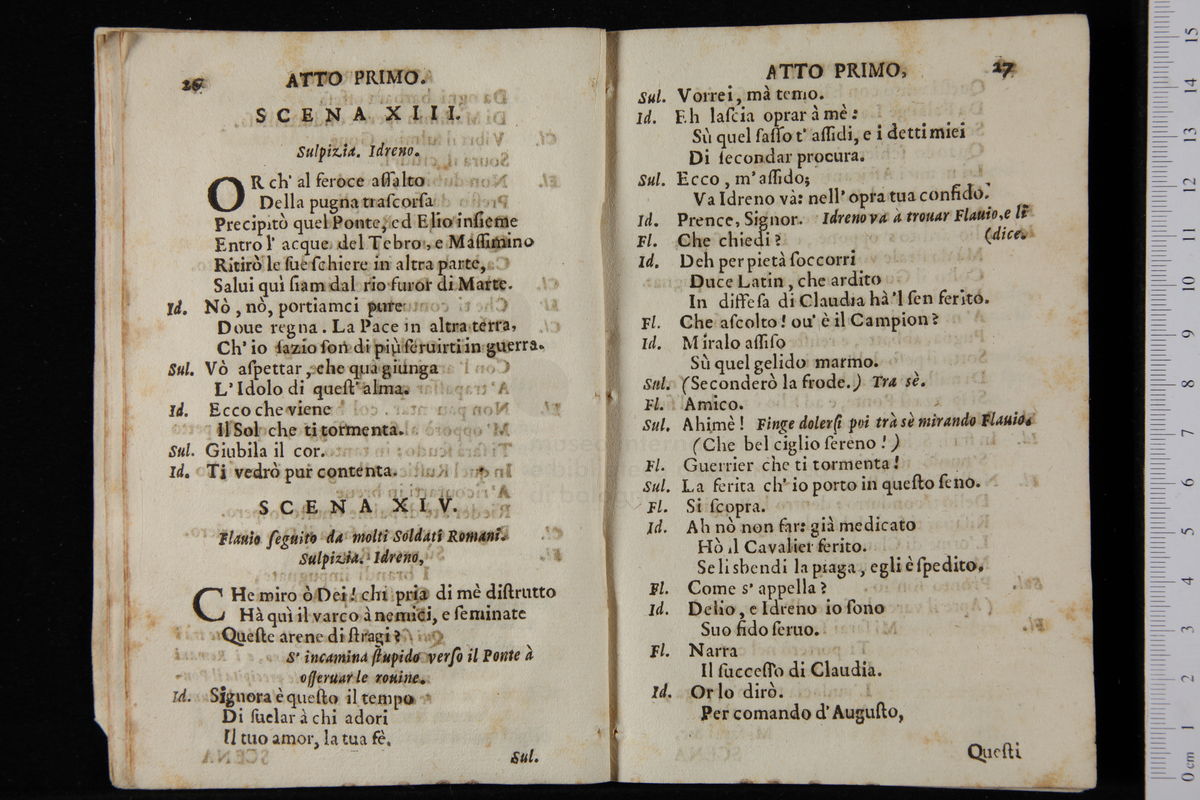 26 ATTO PRIMO.
SCENA XIII.
Sulpizia. Idreno.
OR ch' al feroce aſſalto
Della pugna traſcorſa
Precipitò quel Ponte, ed Elio inſieme
Entro l' acque del Tebro, e Maſſimino
Ritirò le ſue ſchiere in altra parte,
Salui quì ſiam dal rio furor di Marte.
Id. Nò, nò, portiamci pure
Doue regna. La Pace in altra terra,
Ch' io ſazio ſon di più ſeruirti in guerra.
Sul. Vò aſpettar, che quà giunga
L' Idolo di queſt' alma.
Id. Ecco che viene
Il Sol che ti tormenta.
Sul. Giubila il cor.
Id. Ti vedrò pur contenta.
SCENA XIV.
Flauio ſeguito da molti Soldati Romani.
Sulpizia. Idreno,
CHe miro ò Dei! chi pria di mè diſtrutto
Hà quì il varco à nemici, e ſeminate
Queſte arene di ſtragi?
S' incamina ſtupido verſo il Ponte à
oſſeruar le rouine.
Id. Signora è queſto il tempo
Di ſuelar à chi adori
Il tuo amor, la tua fè.
Sul.
ATTO PRIMO, 27
Sul. Vorrei, mà temo.
Id. Eh laſcia oprar à mè:
Sù quel ſaſſo t' aſſidi, e i detti miei
Di ſecondar procura.
Sul. Ecco, m' aſſido;
Va Idreno và: nell' opra tua confido.
Id. Prence, Signor. Idreno va à trouar Flauio, e li
Fl. Che chiedi? (dice.
Id. Deh per pietà ſoccorri
Duce Latin, che ardito
In diffeſa di Claudia hà 'l ſen ferito.
Fl. Che aſcolto! ou' è il Campion?
Id. Miralo aſſiſo
Sù quel gelido marmo.
Sul. (Seconderò la frode.) Tra sè.
Fl. Amico.
Sul. Ahimè! Finge dolerſi poi trà sè mirando Flauio.
(Che bel ciglio ſereno!)
Fl. Guerrier che ti tormenta!
Sul. La ferita ch' io porto in queſto ſeno.
Fl. Si ſcopra.
Id. Ah nò non far: già medicato
Hò il Cavalier ferito.
Se li sbendi la piaga, egli è ſpedito.
Fl. Come s' appella?
Id. Delio, e Idreno io ſono
Suo fido ſeruo.
Fl. Narra
Il ſucceſſo di Claudia.
Id. Or lo dirò.
Per comando d' Auguſto,
Queſti